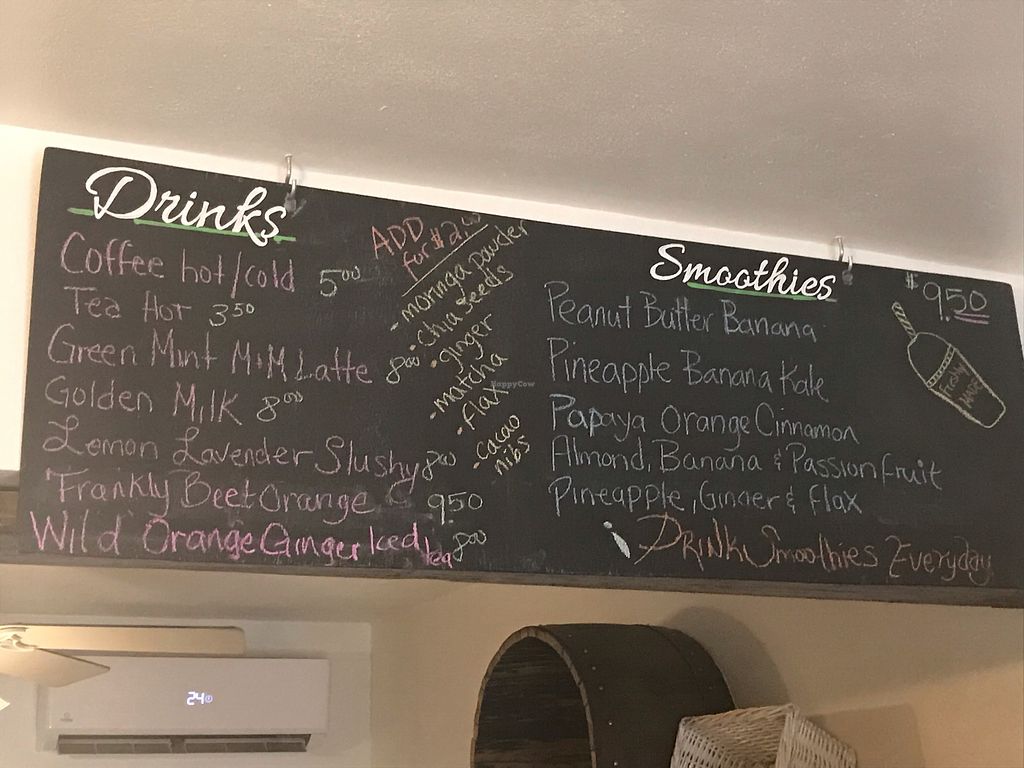 Drinks
Coffee hot/cold 5⁰⁰
Tea Hot 3⁵⁰
Green Mint M+M Latte 8⁰⁰
Golden Milk 8⁰⁰
Lemon Lavender Slushy 8⁰⁰
Frankly Beet Orange 950
Wild Orange Ginger Iced tea 8⁰⁰
ADD
for $2⁰⁰
• moringa powder
• chia seeds
• ginger
• matcha
• flax
• cacao
nibs
Smoothies
$9.50
Peanut Butter Banana
Pineapple Banana Kale
Papaya Orange Cinnamon
Almond, Banana & Passionfruit
Pineapple, Ginger & Flax
Drink Smoothies Everyday
Freshly
MADE
HappyCow
24